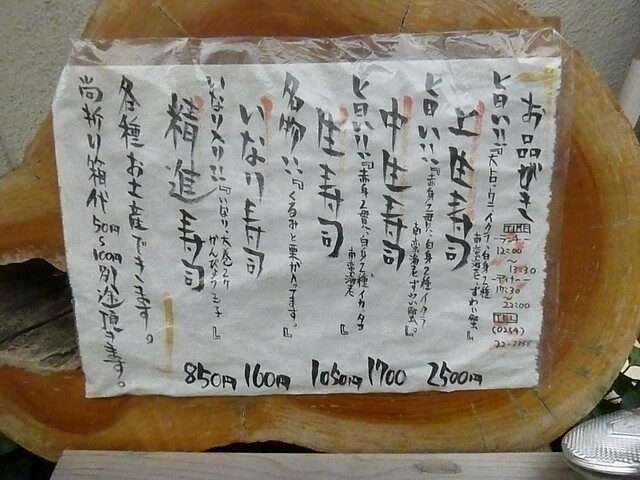 お品がき
TIME
ランチー
12:00
〜
13:30
ーディナー
17:30
〜
22:00
TEL
(0254)
旨い!!『大トロ・ウニ・イクラ・白身2種
南蛮海老・ずわい蟹。』
上生寿司 2500円
旨い!!『赤身2貫、白身2種イクラ
南蛮海老ずわい蟹。』
中生寿司 1700
旨い!!『赤身2貫、白身2種イカ、タコ
南蛮海老 』
生寿司 1050円
名物!!『くるみと栗が入ってます。』
いなり寿司 160円
いなり入り!!『いなり、太巻2ケ
かんぴょう玉子 』
精進寿司 850円
各種お土産できます。
尚折り箱代50円〜100円別途頂きます。